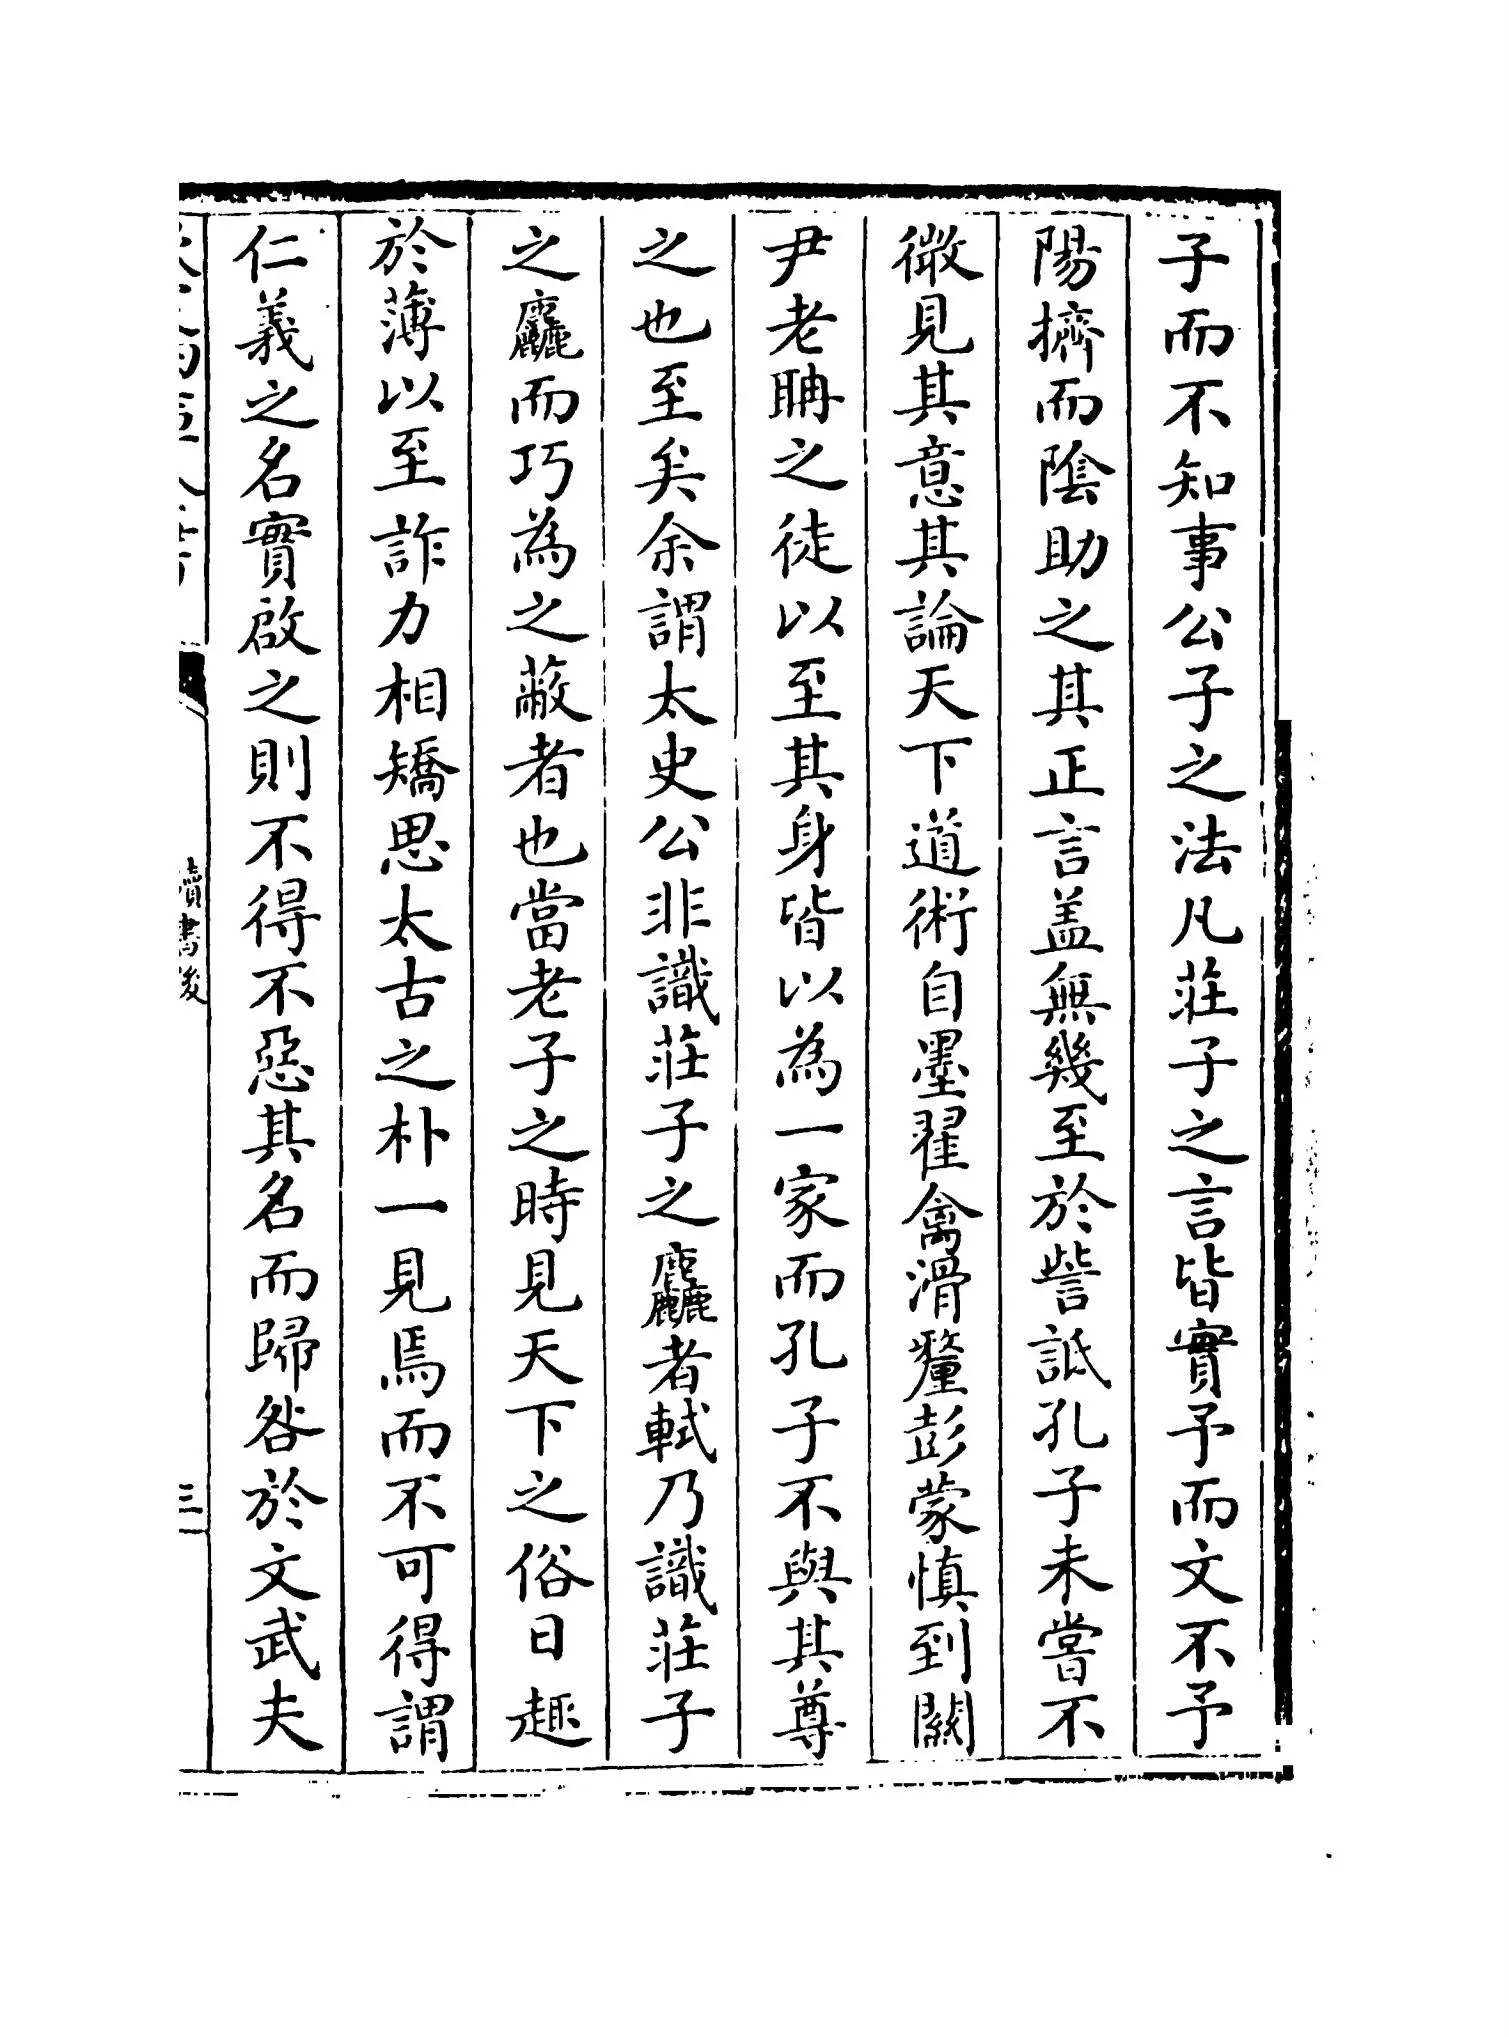 子而不知事公子之法凡莊子之言皆實予而文不予
陽擠而陰助之其正言盖無幾至於訾詆孔子未嘗不
微見其意其論天下道術自墨翟禽滑釐彭蒙慎到關
尹老聃之徒以至其身皆以為一家而孔子不與其尊
之也至矣余謂太史公非識莊子之麤者軾乃識莊子
之麤而巧為之蔽者也當老子之時見天下之俗日趣
於薄以至詐力相矯思太古之朴一見焉而不可得謂
仁義之名實啟之則不得不惡其名而歸咎於文武夫
讀書後
三